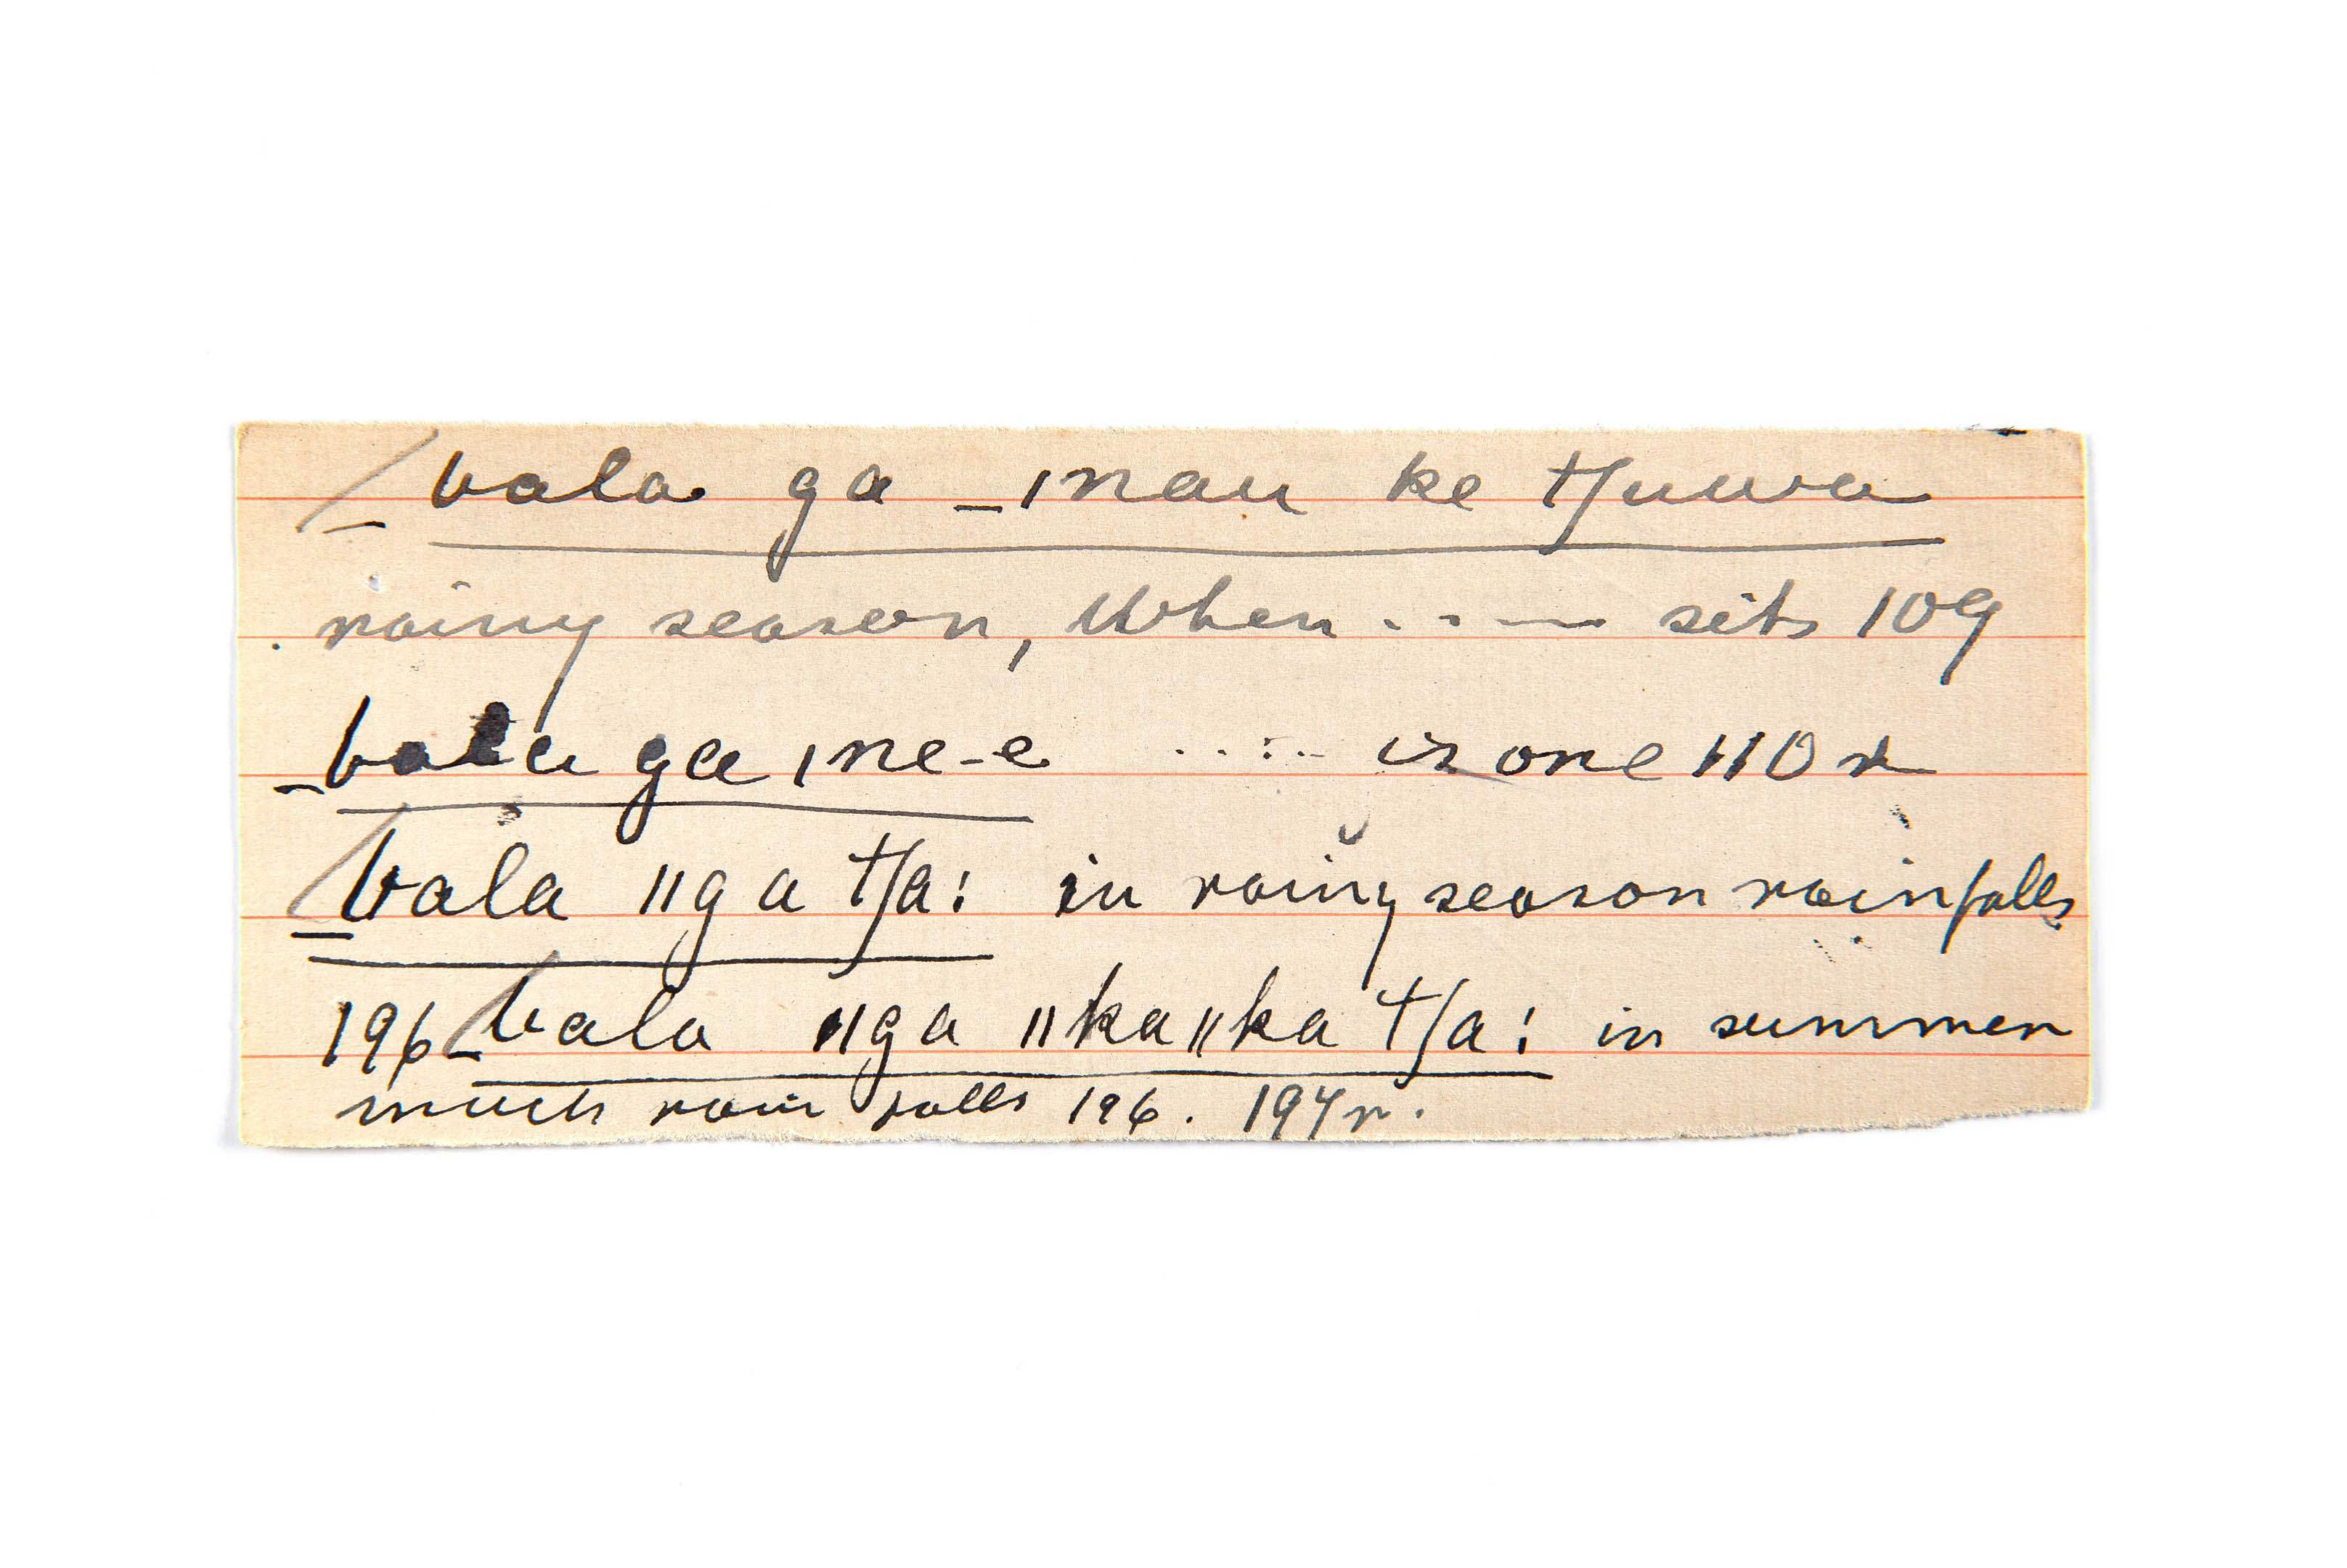 _bala ga _ǀnau ke tʃuwa
rainy season, When ..-— sits 109
_bala ga ǀne-e ..... is one 110 r
_bala ǁga tʃa: in rainy season rain falls
196 _bala ǁga ǁkaǁka tʃa: in summer
much rain falls 196. 194r.